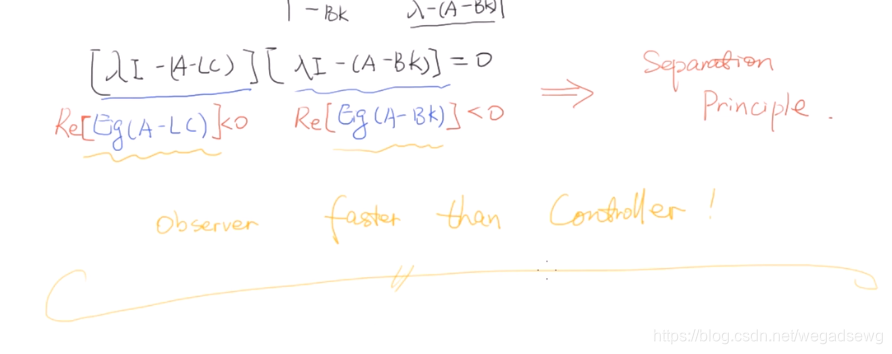 -BK λ-(A-BK)|
[λI-(A-LC)][λI-(A-BK)]=0 ⇒ Separation
Principle.
Re[Eg(A-LC)]<0 Re[Eg(A-BK)]<0
Observer faster than Controller!
https://blog.csdn.net/wegadsewg